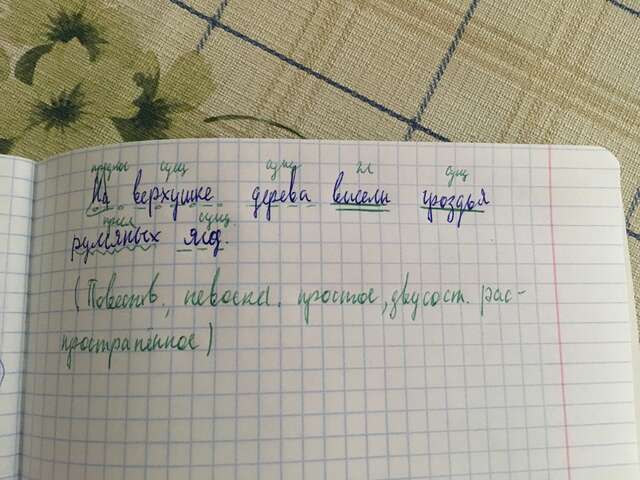 предлог сущ сущ гл сущ
На верхушке дерева висели гроздья
прил сущ
румяных ягод.
(Повеств, невоскл. простое, двусост. рас-
пространённое)